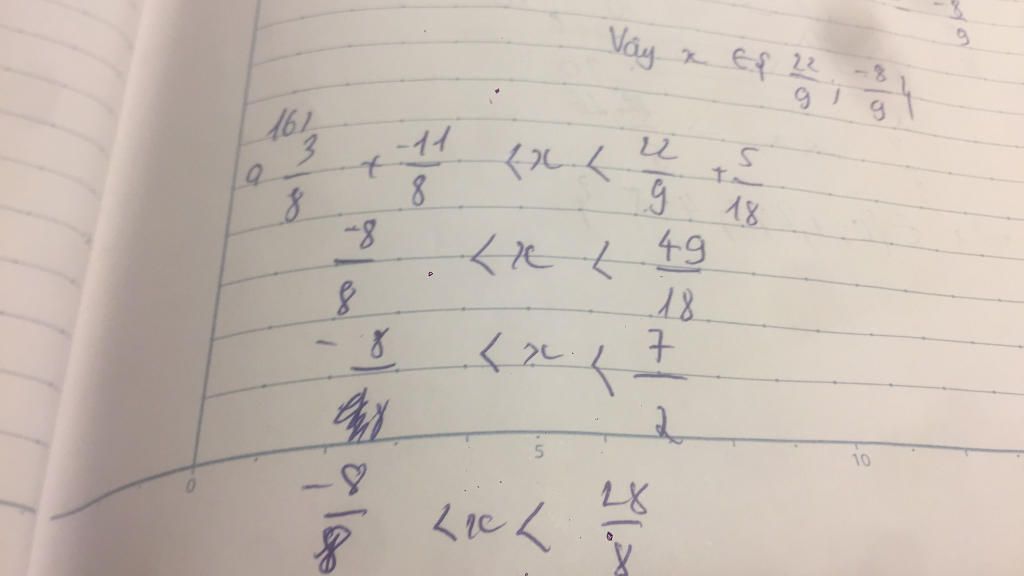 -8/9
Vây x ∈ { 22/9 ; -8/9 }
16)
a 3/8 + -11/8 < x < 22/9 + 5/18
-8/8 < x < 49/18
- 8/8 < x < 7/2
0 5 10
-8/8 < x < 28/8